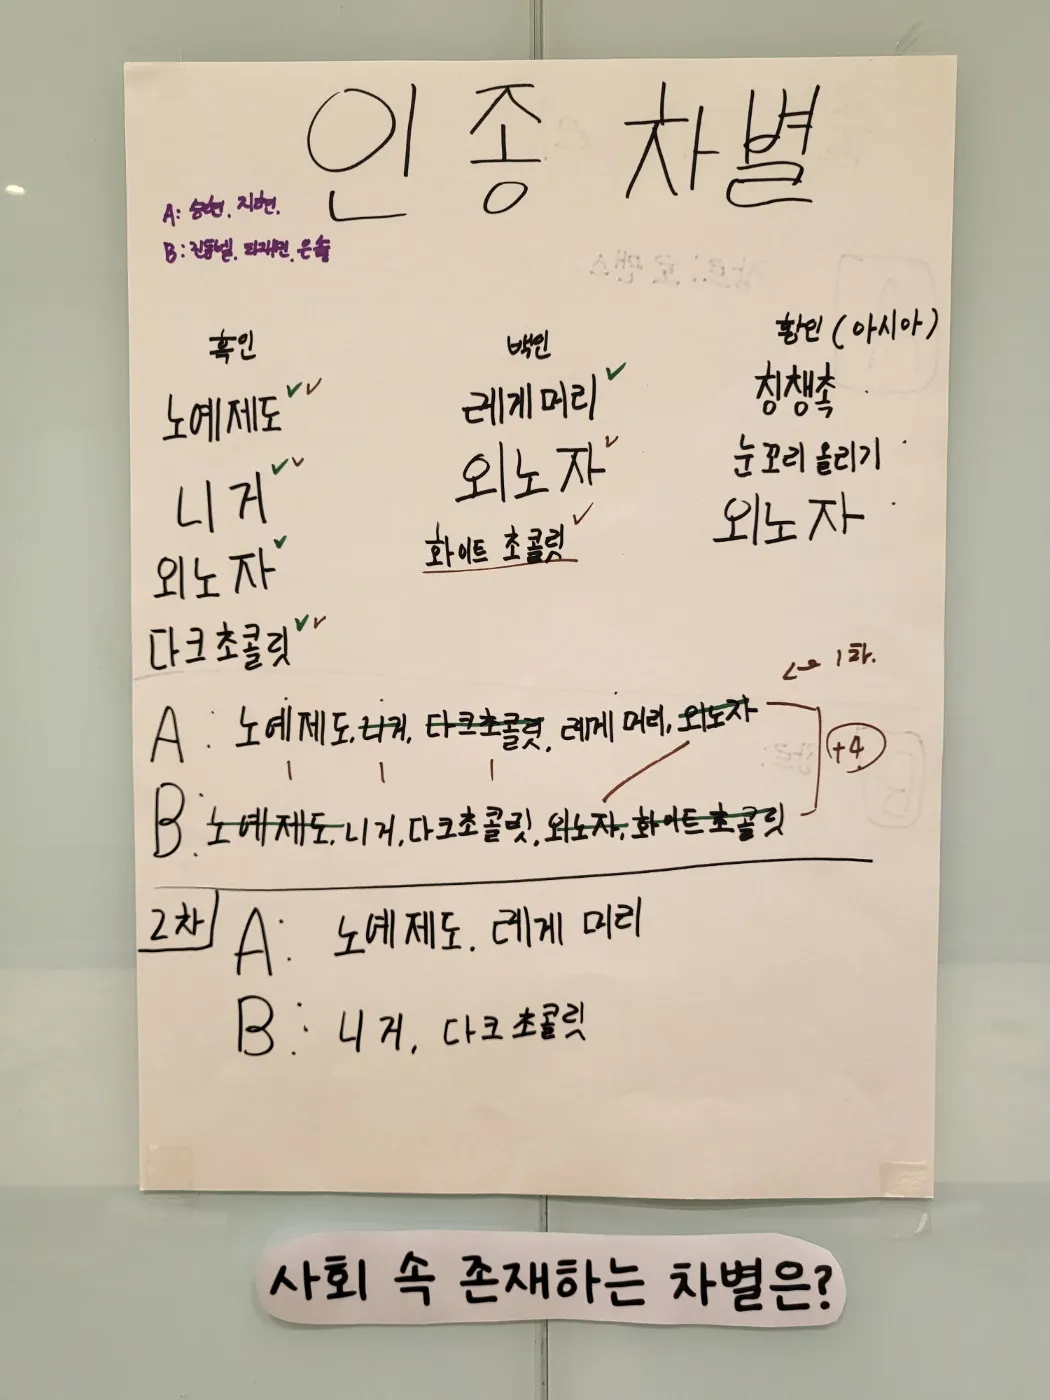 인종 차별
A: 승현, 지현.
B: 은솔
흑인
노예제도
니거
외노자
다크초콜릿
백인
레게머리
외노자
화이트 초콜릿
황인 (아시아)
칭챙촉
눈꼬리 올리기
외노자
1차.
A: 노예제도, 니거, 다크초콜릿, 레게 머리, 외노자
+4
B: 노예제도, 니거, 다크초콜릿, 외노자, 화이트초콜릿
2차
A: 노예제도, 레게 머리
B: 니거, 다크초콜릿
사회 속 존재하는 차별은?